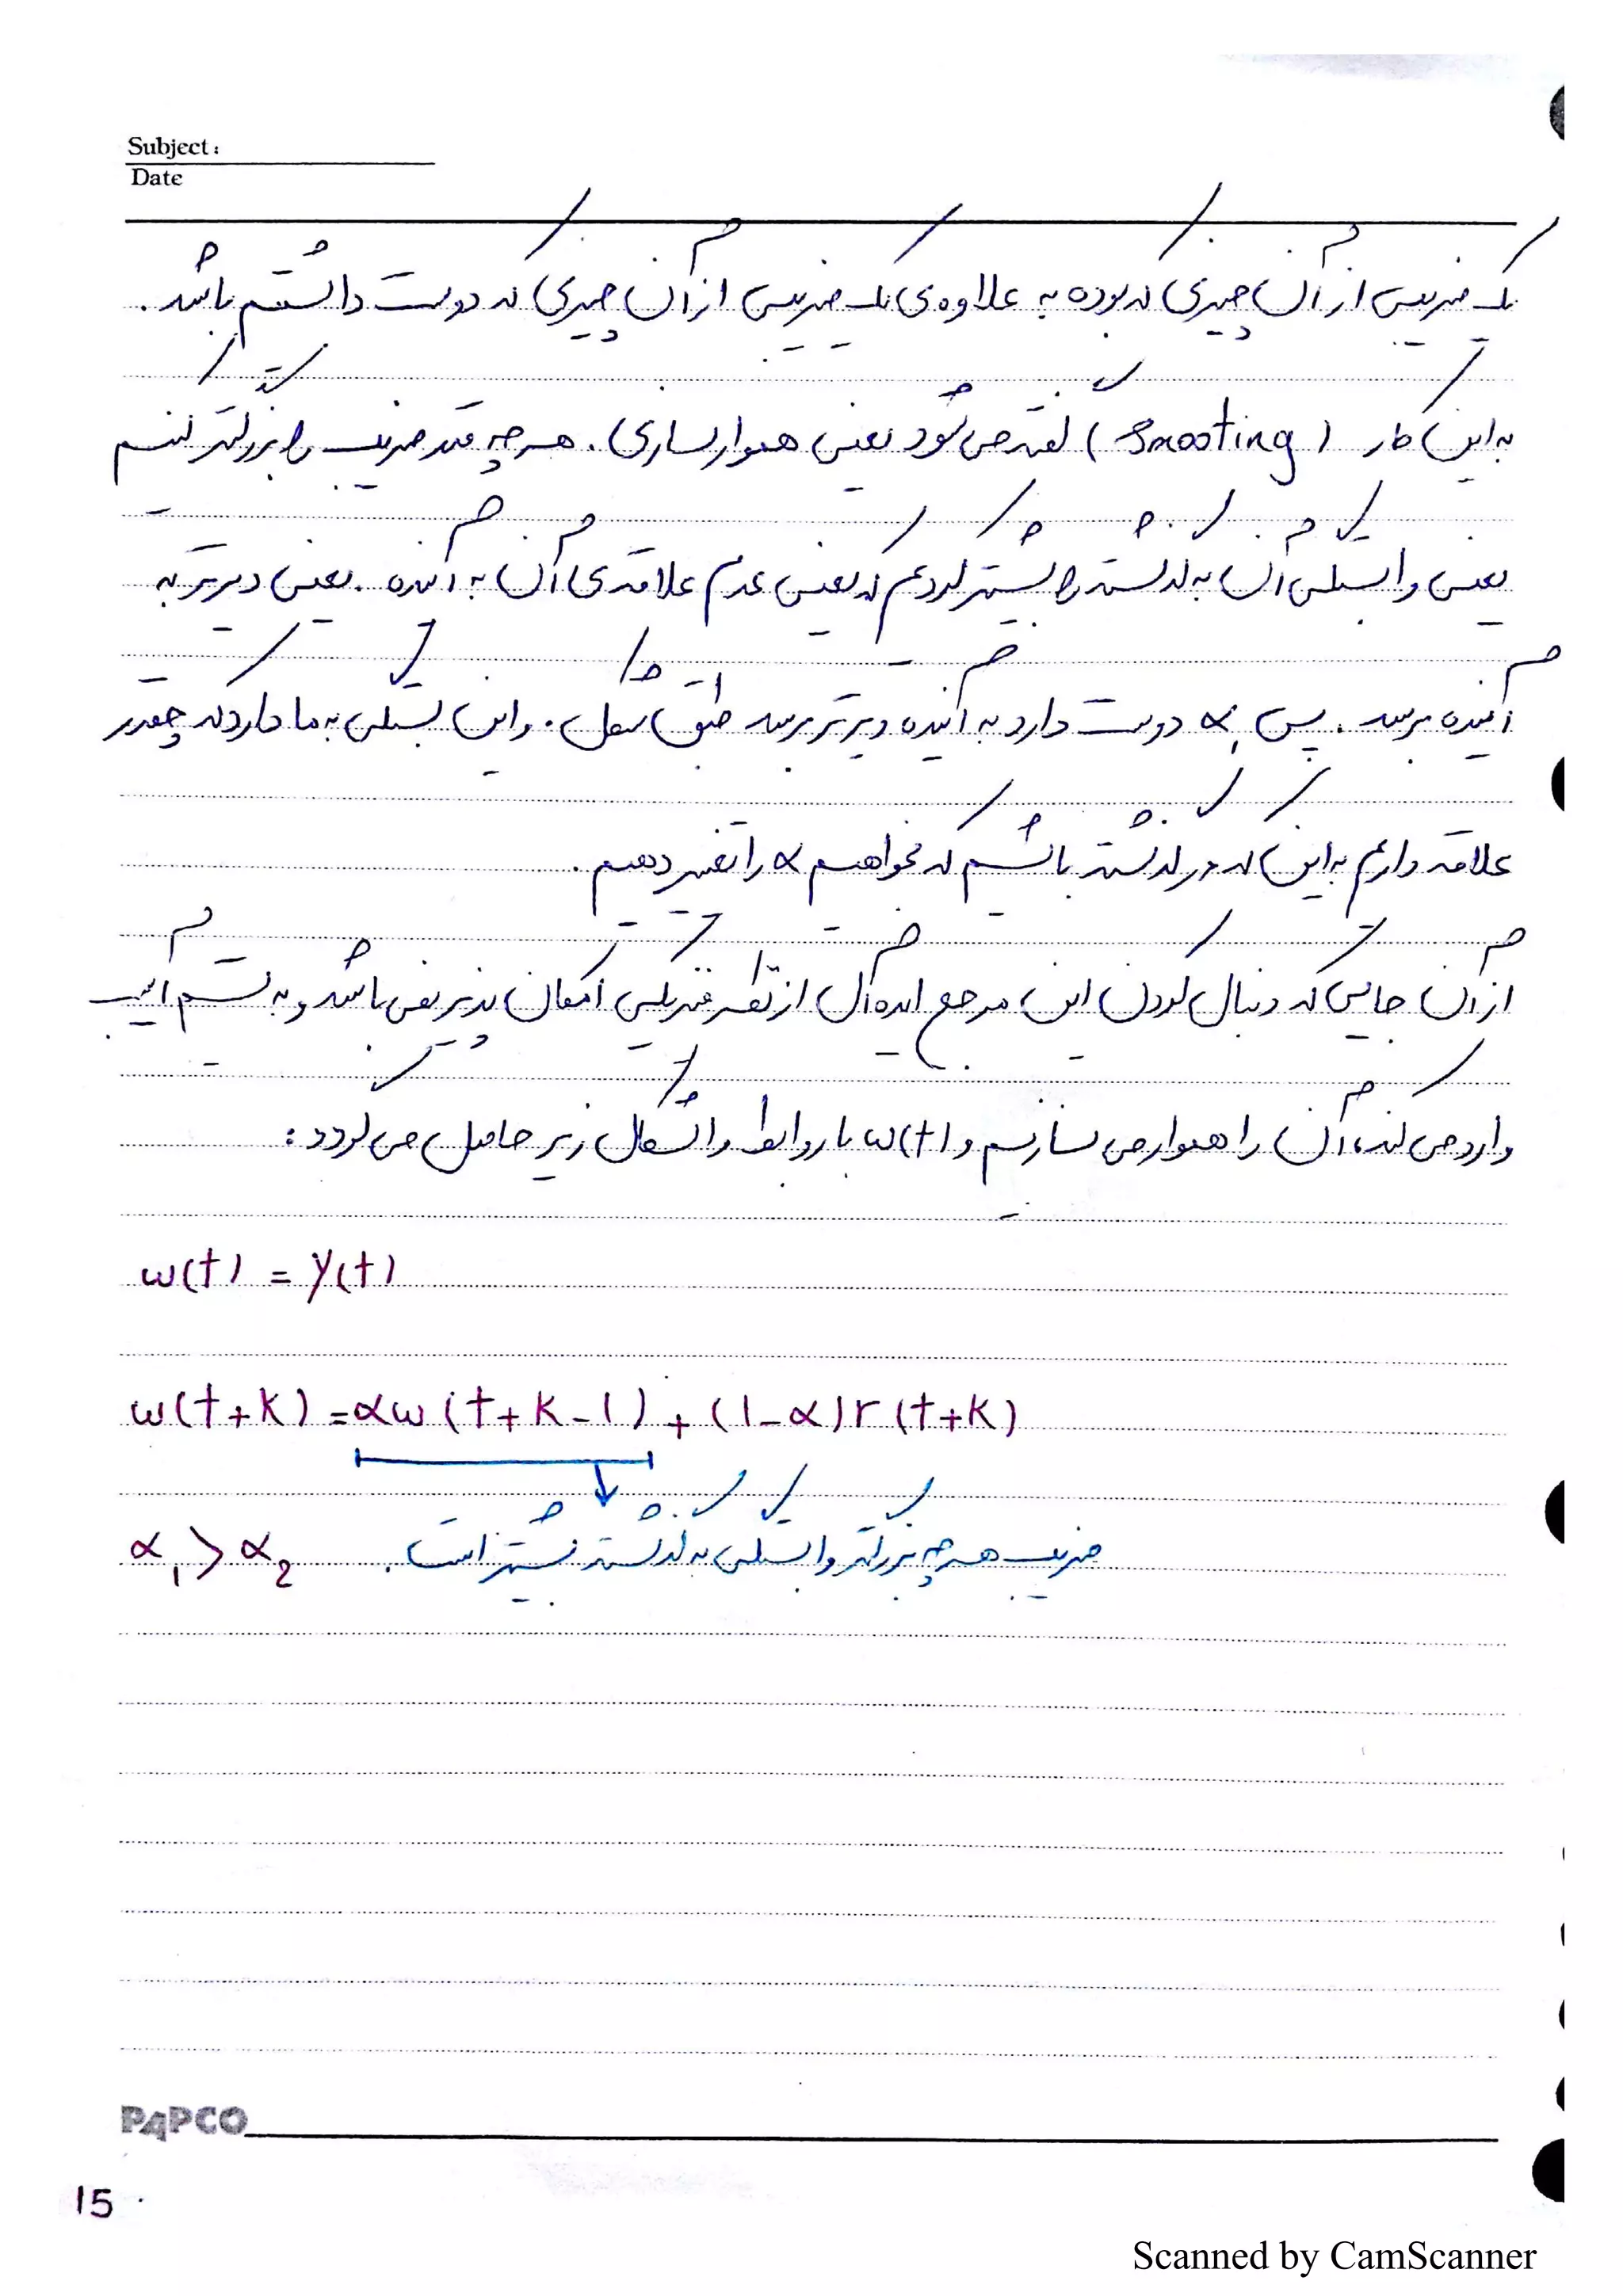 Subject:
Date
یک ضریبی از آن چیزی که بوده به علاوه‌ی یک ضریبی از آن چیزی که دوست داشتم باشد.
به این کار (Smooting) گفته می‌شود یعنی هموارسازی. هر چه قدر ضریب را بزرگتر کنیم
یعنی وابستگی آن به گذشته را بیشتر کردیم که یعنی عدم علاقه‌ی آن به آینده. یعنی دیرتر به
آینده برسد. پس α₁ دوست دارد به آینده دیرتر برسد طبق شکل. و این بستگی به ما دارد که چقدر
علاقه داریم به این که در گذشته باشیم که بخواهیم α را تغییر دهیم.
از آن جایی که دنبال کردن این مرجع ایده‌آل از نظر فیزیکی امکان پذیر نمی‌باشد و به سیستم آسیب
وارد می‌کند، آن را هموار می‌سازیم و w(t) با روابط و اشکال زیر حاصل می‌گردد:
w(t) = y(t)
w(t+k) = αw(t+k-1) + (1-α)r(t+k)
ضریب هر چه بزرگتر وابستگی به گذشته بیشتر است.
α₁ > α₂
PAPCO
15
Scanned by CamScanner